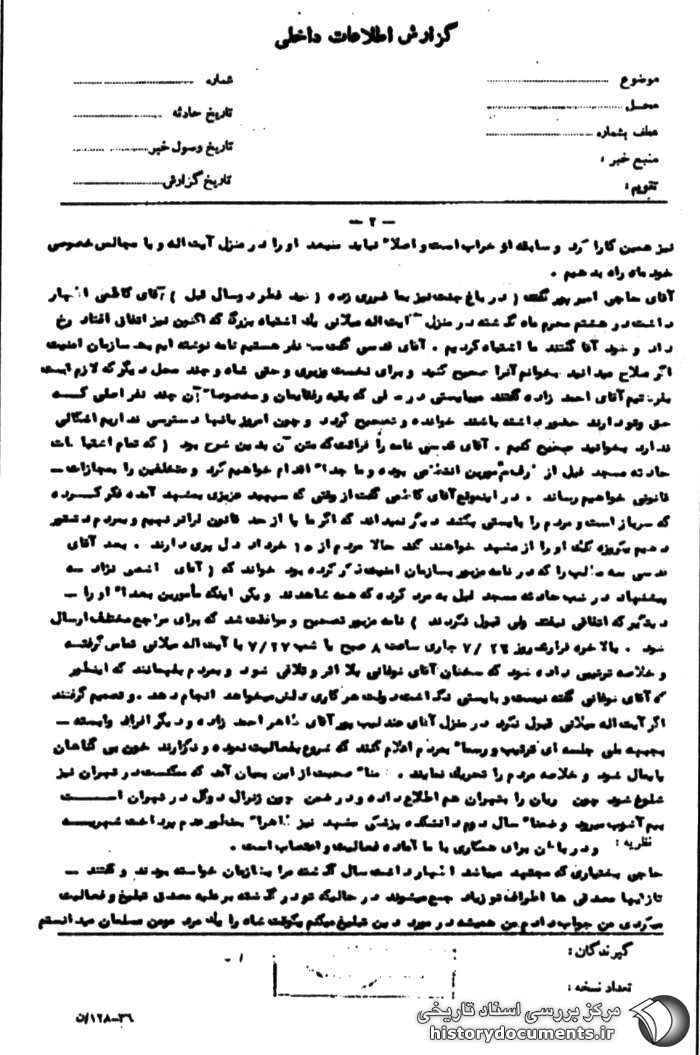 گزارش اطلاعات داخلی
موضوع
شماره
محل
تاریخ حادثه
عطف بشماره
تاریخ وصول خبر
منبع خبر :
تاریخ گزارش
تقویم :
— ۲ —
نیز همین کار را کرد و سابقه او خراب است و اصلا" نباید سیصد او را در منزل آیت اله و یا مجالس خصوصی
خود ماه راه بدهیم .
آقای حاجی امیر پور گفت ( در باغ جنت نیز بما ضرری زده ( عید فطر دو سال قبل ) آقای کاظمی اظهار
داشت در هشتم محرم ماه گذشته در منزل آیت اله میلانی یک اشتباه بزرگ که اکنون نیز اتفاق افتاد رخ
داد و خود آقا گفتند ما اشتباه کردیم . آقای قدسی گفت سه نفر هستیم نامه نوشته ایم به سازمان امنیت
اگر صلاح میدانید بخوانم آنرا صحیح کنید و برای نخست وزیری و حتی شاه و چند محل دیگر که لازم است
بفرستیم آقای احمد زاده گفتند میبایستی در محلی که بقیه رفقایمان و مخصوصا" آن چند نفر اصلی کسه
حق وتو دارند حضور داشته باشند خوانده و تصحیح گردد و چون امروز بآنها دسترسی نداریم اشکالی
ندارد بخوانید صحیح کنیم . آقای قدسی نامه را قرائت که متن آن بدین شرح بود ( که تمام اشتباهات
حادثه مسجد فیل از طرف مأمورین انتظامی بوده و ما جدا" اقدام خواهیم کرد و متخلفین را بمجازات —
قانونی خواهیم رساند . در اینموقع آقای کاظمی گفت از وقتی که سپهبد عزیزی بمشهد آمده فکر کسرده
که سرباز است و مردم را بایستی بکشد دیگر نمیداند که اگر ما پا از حد قانون فراتر نهیم و بمردم دستور
دهیم یکروزه کلک او را از مشهد خواهند کند حالا مردم از ۱۵ خرداد دل پری دارند . بعد آقای
قدسی سه مطلب را که در نامه مزبور بسازمان امنیت ذکر کرده بود خواند که ( آقای نژاد سه
پیشنهاد در شب حادثه مسجد فیل به مرد کرده که همه شاهدند و یکی اینکه مأمورین بعدا" او را —
دستگیر که اتفاقی نیفتد ولی قبول نکردند ) نامه مزبور تصحیح و موافقت شد که برای مراجع مختلف ارسال
شود . بالاخره قرار شد روز ۲۶ /۷ جاری ساعت ۸ صبح یا شب ۷/۲۷ با آیت اله میلانی تماس گرفتسه
و خلاصه ترتیبی داده شود که سخنان آقای نوقانی بلا اثر و تلافی شود و بمردم بفهمانند که اینطور
که آقای نوقانی گفته نیست و بایستی نگذاشت دولت هر کاری دلش میخواهد انجام دهد .و تصمیم گرفتند
اگر آیت اله میلانی قبول نکرد در منزل آقای عندلیب پور آقای طاهر احمد زاده و دیگر افراد وابسته —
بجبهه ملی جلسه ای ترتیب و رسما" بمردم اعلام کنند که شروع بفعالیت نموده و نگذارند خون بی گناهان
پایمال شود و خلاصه مردم را تحریک نمایند . ضمنا" صحبت از این بمیان آمد که ممکنست در تهران نیز
شلوغ شود چون جریان را بتهران هم اطلاع داده و در ضمن چون ژنرال دوگل در تهران اســت
بیم آشوب میرود و ضمنا" سال دوم دانشکده پزشکی مشهد نیز ظاهرا" بمنظور عدم پرداخت شهریــه
نظریه : و در باطن برای همکاری با ما آماده فعالیت و اعتصاب است .
حاجی بختیاری که مجتهد میباشد اظهار داشت سال گذشته مرا بسازمان خواسته بودند و گفتند —
تازگیها مصدقی ها اطراف تو زیاد جمع میشوند در حالیکه تو در گذشته بر علیه مصدق تبلیغ و فعالیت
میکردی من جواب دادم من همیشه در مورد دین تبلیغ میکنم یکوقت شاه را یک مرد مومن مسلمان میدانستم
گیرندگان :
تعداد نسخه :
۳۶–۱۲۸/ن
مرکز بررسی اسناد تاریخی
historydocuments.ir